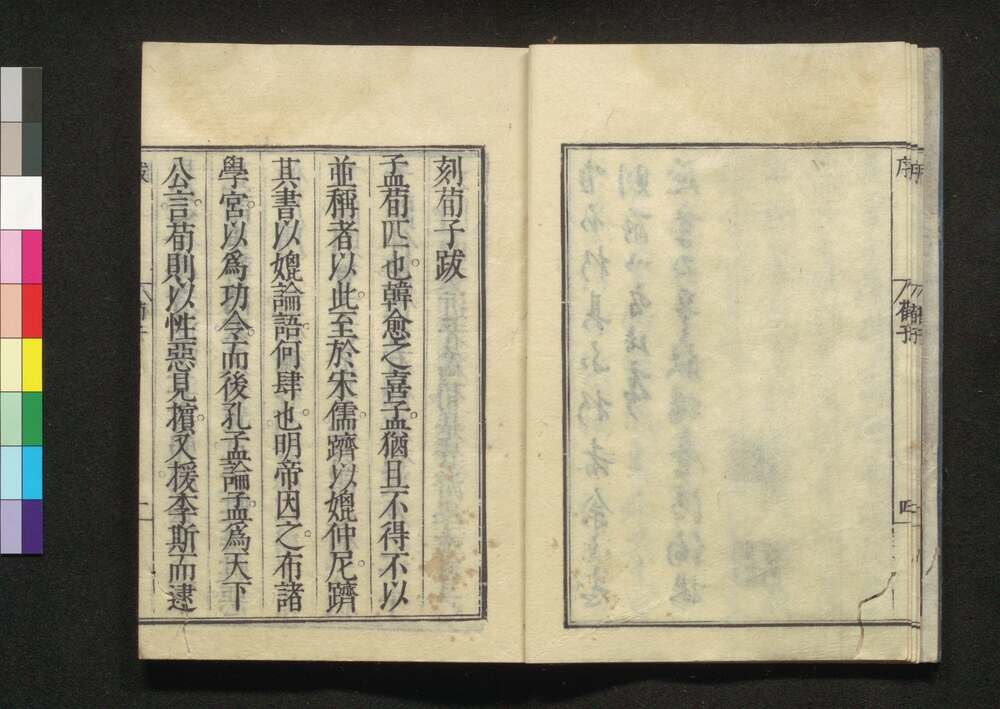 序
四
刻荀子跋
孟荀匹也韓愈之喜孟猶且不得不以
並稱者以此至於宋儒躋以媲仲尼躋
其書以媲論語何肆也明帝因之布諸
學宮以爲功令而後孔孟論孟爲天下
公言荀則以性惡見擯又援李斯而逮
跋